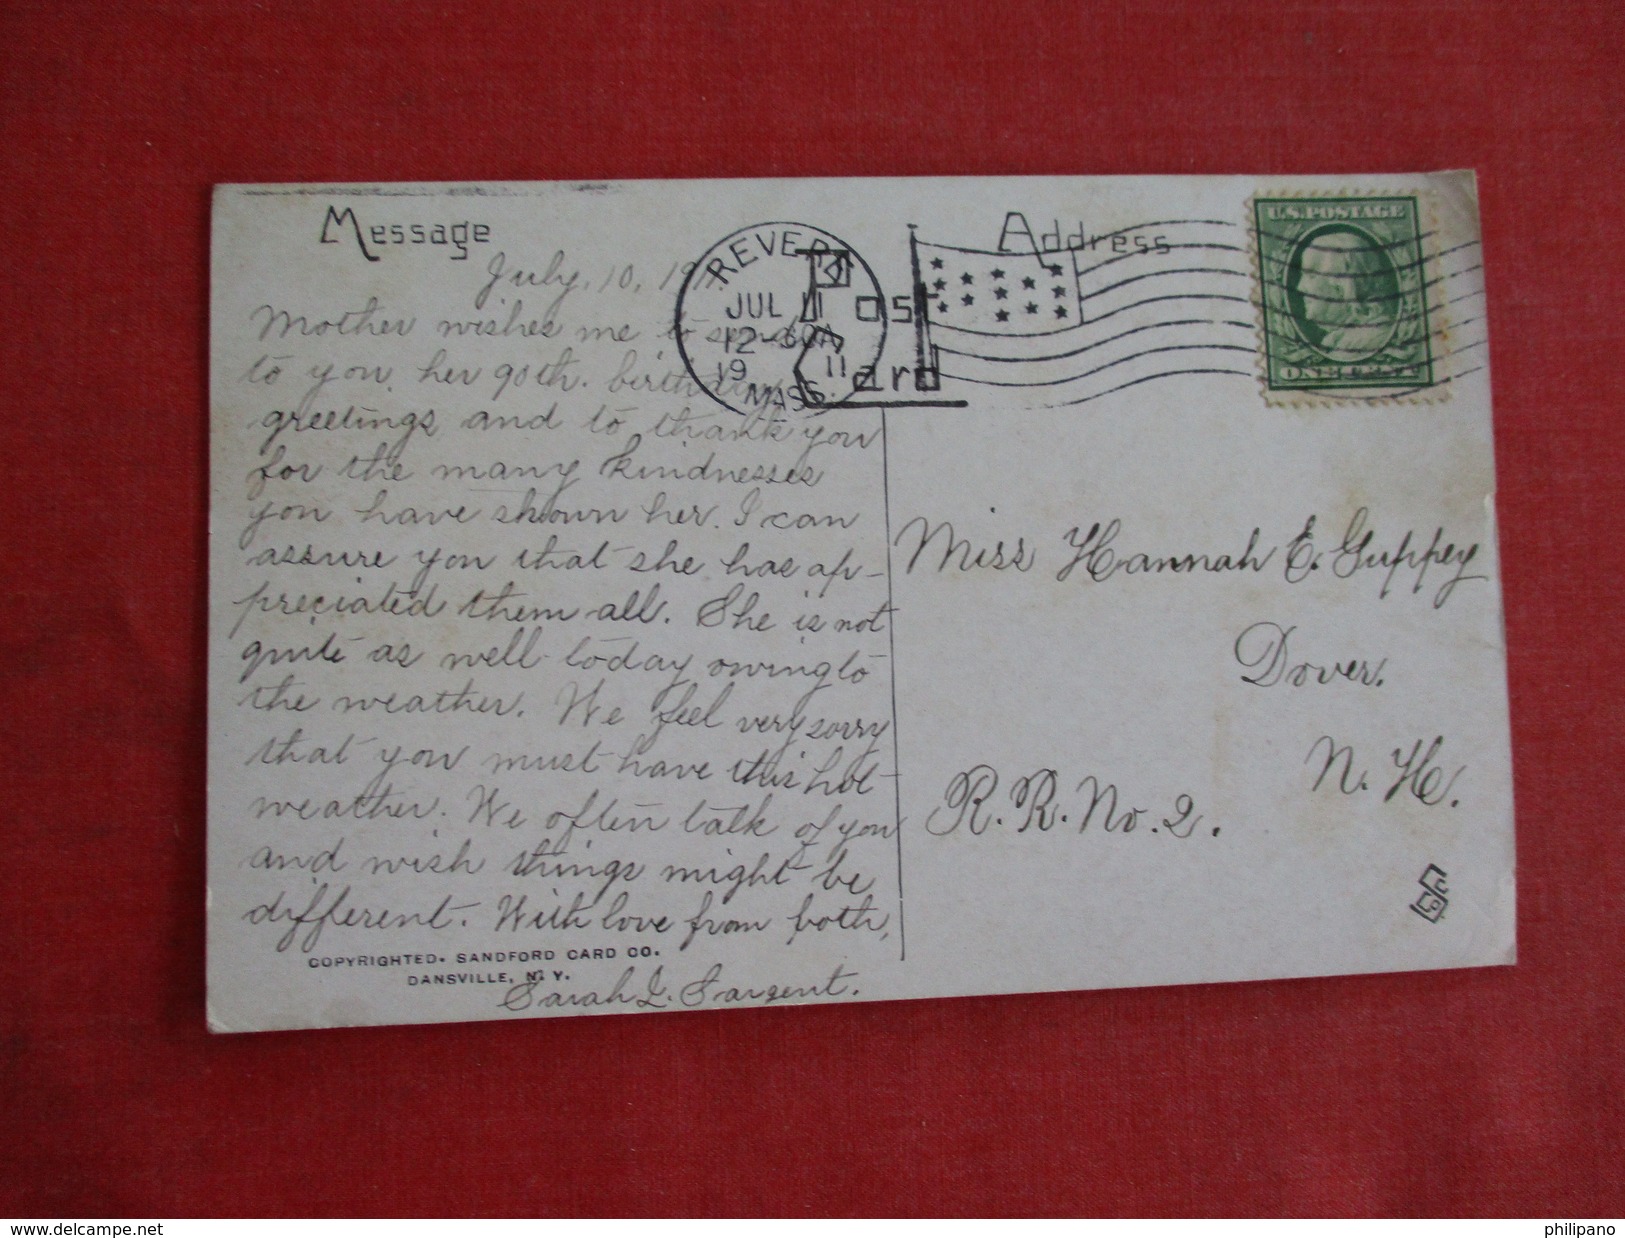 Message
July, 10, 19
Mother wishes me to send
to you, her 90th. birthday
greetings and to thank you
for the many kindnesses
you have shown her. I can
assure you that she has ap-
preciated them all. She is not
quite as well today owing to
the weather. We feel very sorry
that you must have this hot
weather. We often talk of you
and wish things might be
different. With love from both,
Sarah L. Sargent.
COPYRIGHTED. SANDFORD CARD CO.
DANSVILLE, N. Y.
REVERE
JUL 11
12-30A
19 11
MASS.
Post
Card
Address
U.S. POSTAGE
Miss Hannah E. Guppey
Dover.
N. H.
R. R. No. 2.
www.delcampe.net
philipano